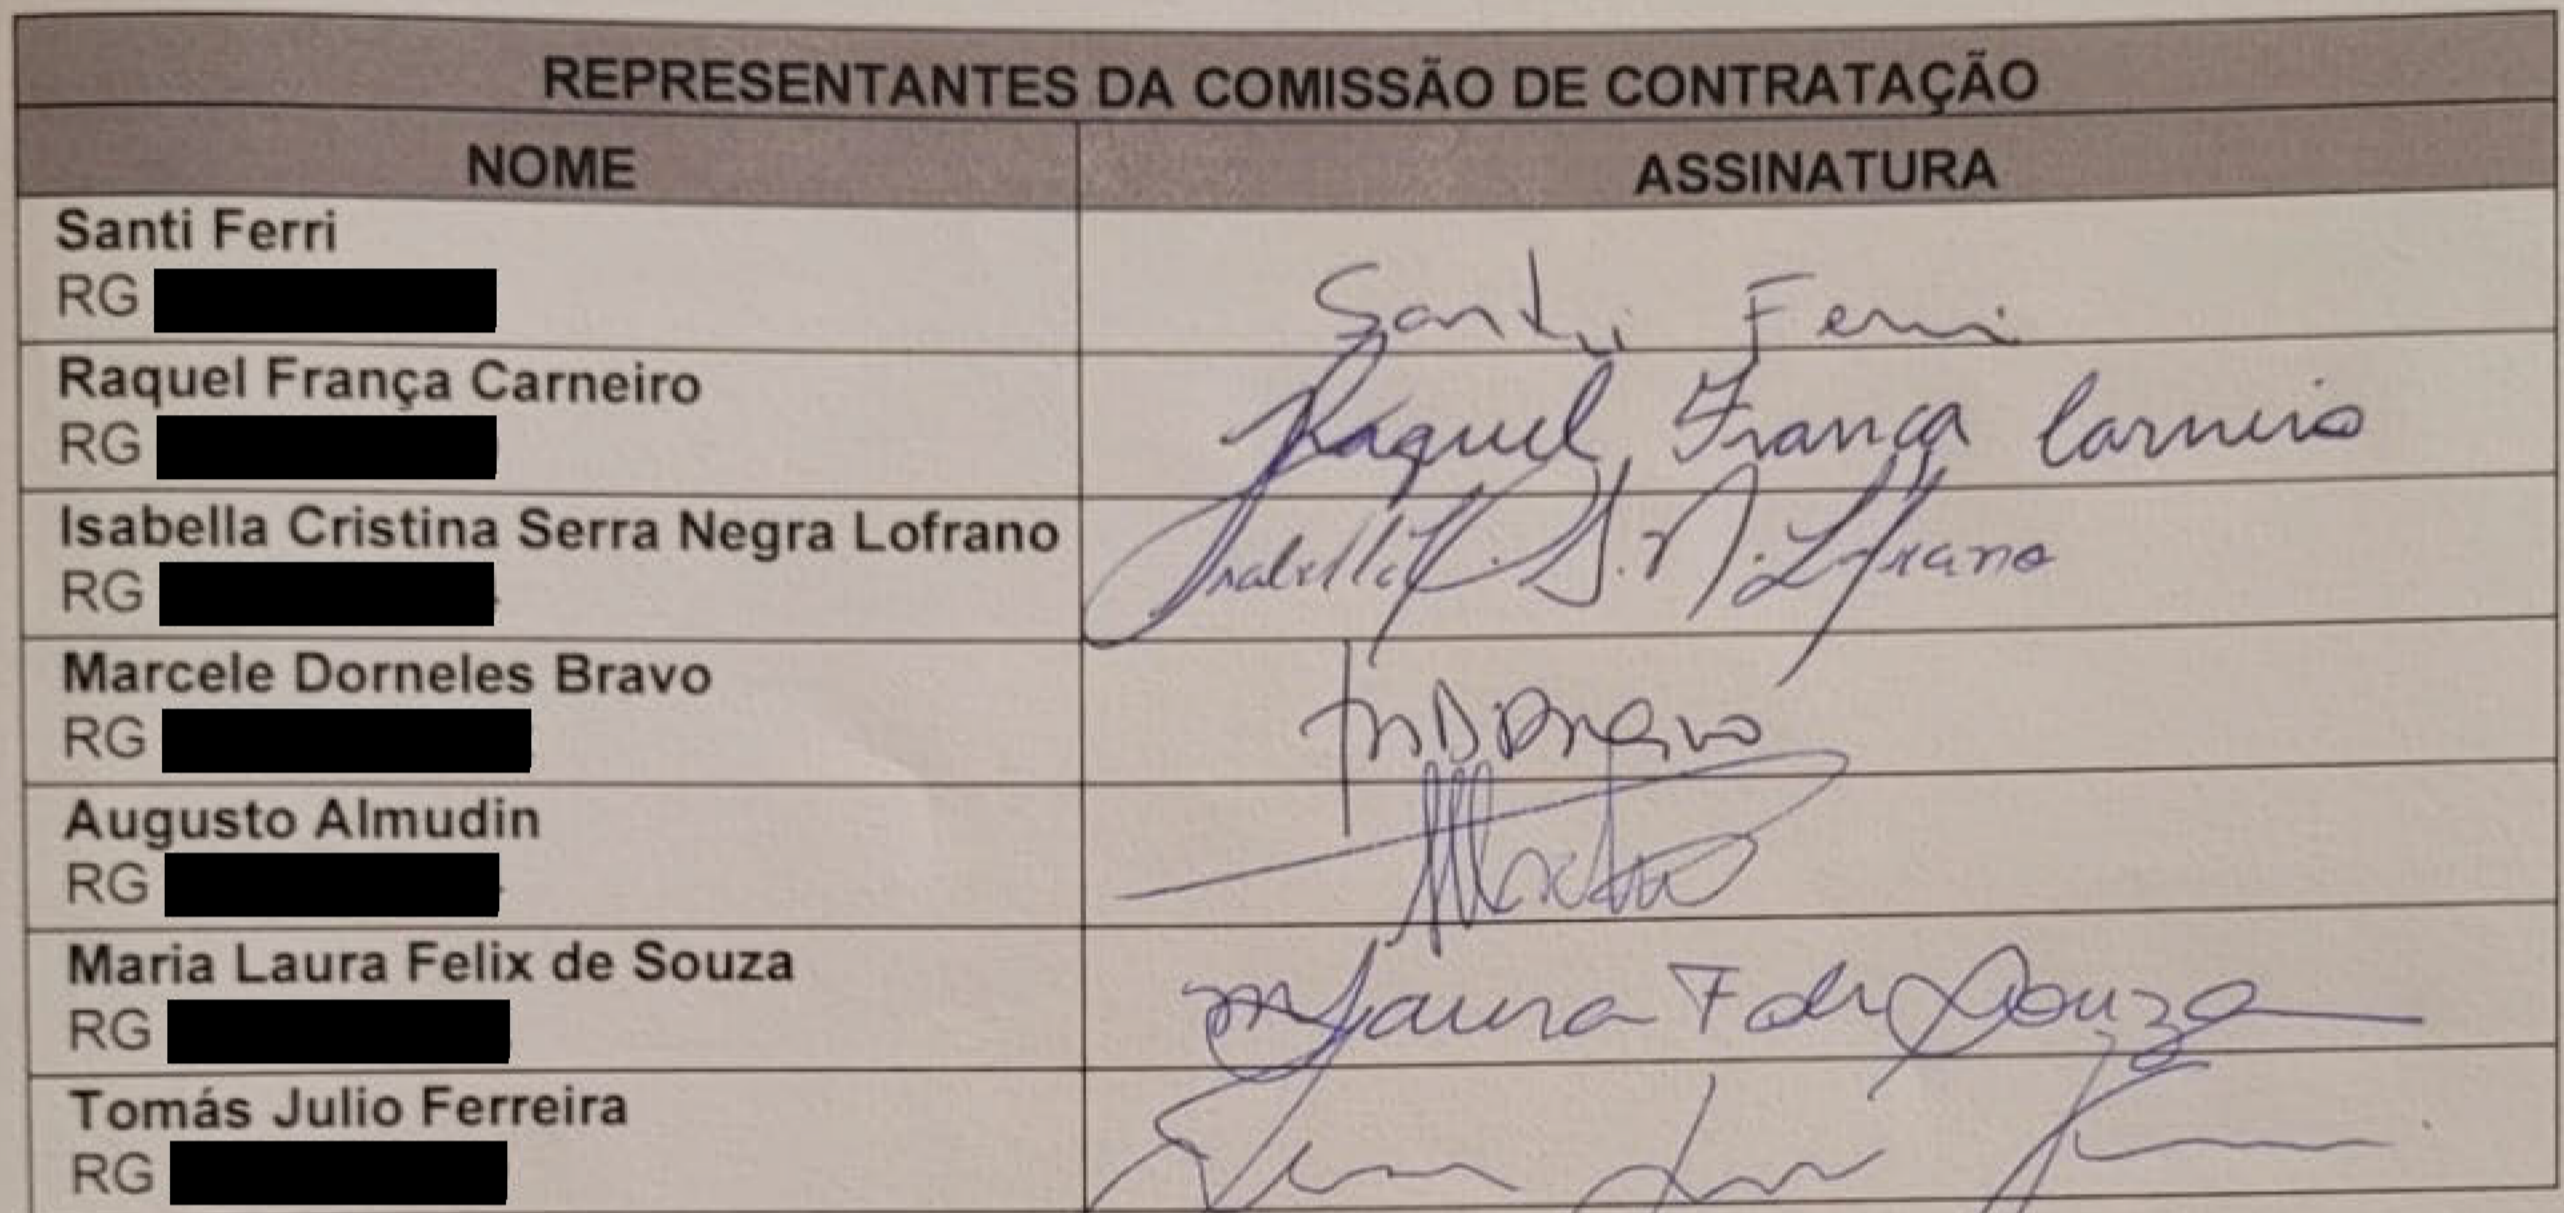 REPRESENTANTES DA COMISSÃO DE CONTRATAÇÃO
NOME ASSINATURA
Santi Ferri
RG
Santi Ferri
Raquel França Carneiro
RG
Raquel França Carneiro
Isabella Cristina Serra Negra Lofrano
RG
Isabella C. S. N. Lofrano
Marcele Dorneles Bravo
RG
Augusto Almudin
RG
Maria Laura Felix de Souza
RG
M Laura F de Souza
Tomás Julio Ferreira
RG